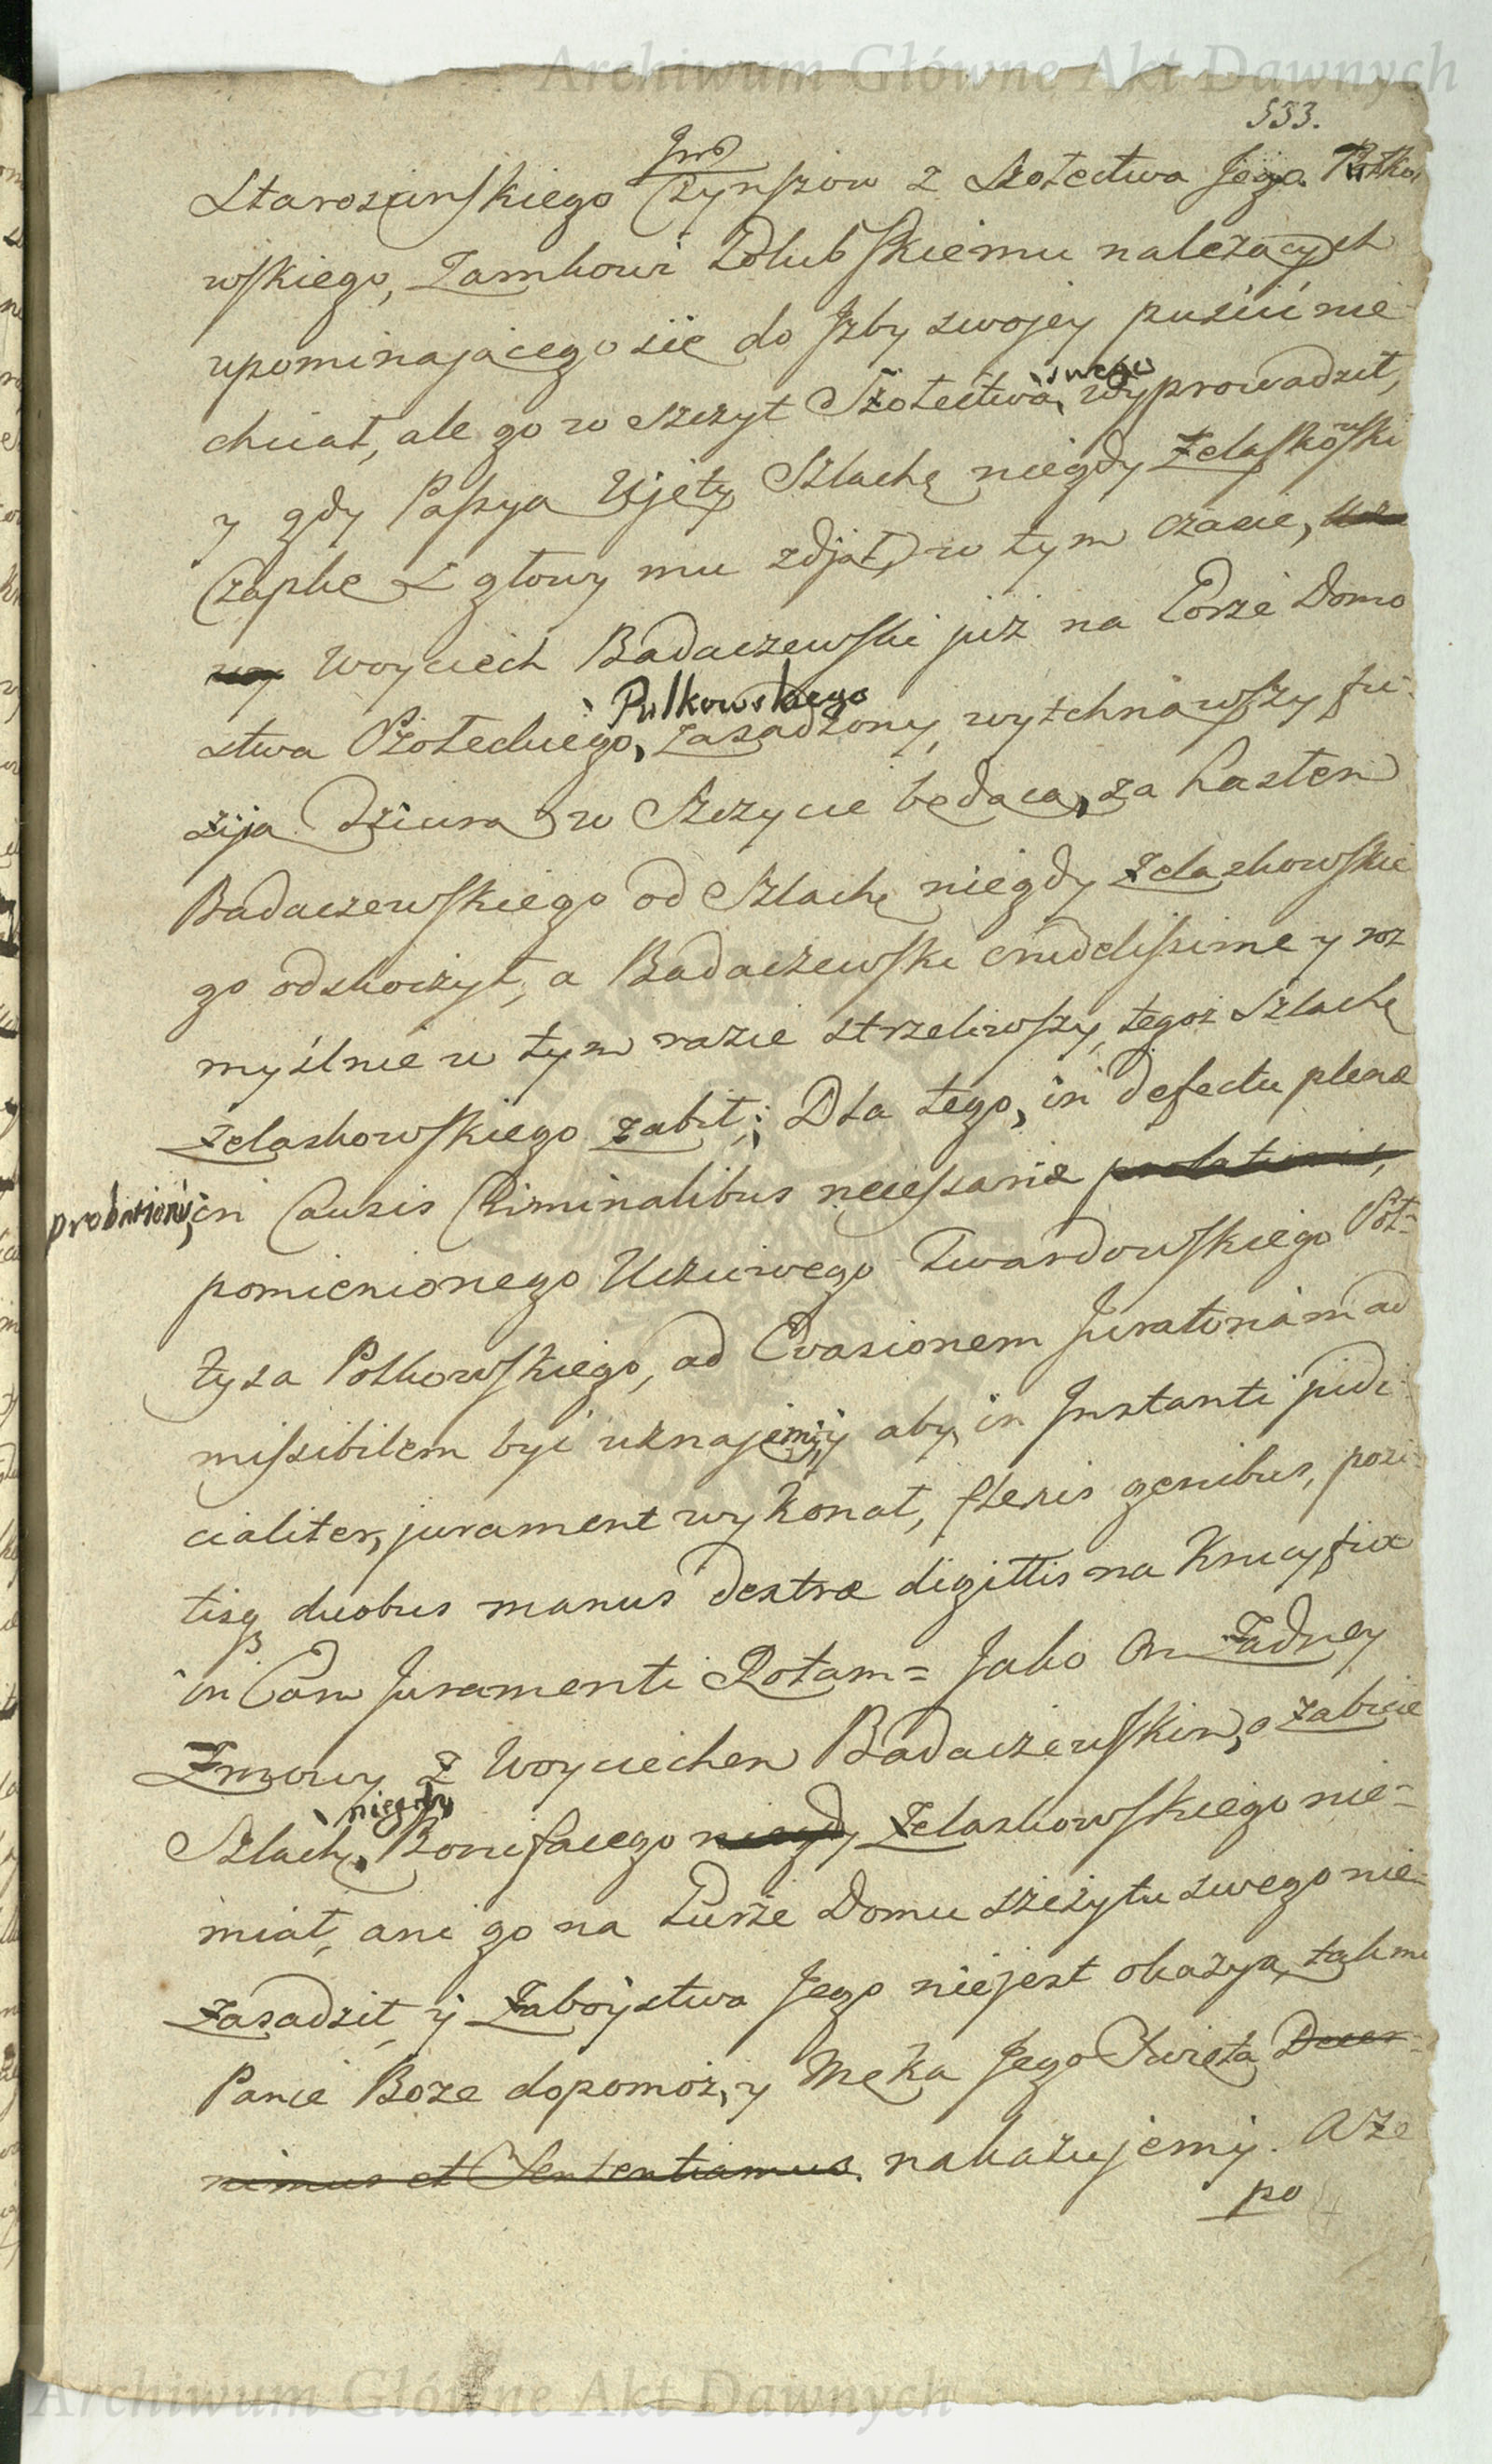 Archiwum Główne Akt Dawnych
533.
Starościńskiego Czynszow z Szołectwa Jego Połko
wskiego, Zamkowi Zdubskiemu należących
upominającego się do Jzby swojey puścić nie
chciał, ale go w szczyt Szołectwa swego wyprowadził,
y gdy Passya Ujęty Szlachę niegdy Zelaskowski
Czapkę z głowy mu zdjął, w tym czasie,
Woyciech Badaczewski już na Gorze Domo
stwa Szołeckiego, Pulkowskiego zasadzony, wytchnąwszy fu-
zyją Dziurą w Szczycie będącą, za hasłem
Badaczewskiego od Szlachę niegdy Zelaskowskie
go odskoczył, a Badaczewski crudelissime y roz
myślnie w tym razie strzeliwszy, tegoż Szlachę
Zelaskowskiego zabił; Dla tego, in defectu plenæ
probationis, in Causis Criminalibus necessariæ probationis,
pomienionego Uczciwego Twardowskiego Soł-
tysa Polkowskiego, ad Evasionem Juratoriam ad
missibilem być uznajemy aby in Jnstanti judi
cialiter, jurament wykonał, flexis genibus, posi
tisq duobus manus dextræ digittis na Krucyfix
in Eam Juramenti Rotam = Jako On Żadney
Zmowy z Woyciechem Badaczewskim, o zabicie
Szlach. niegdy Bonifacego niegdy Zelaskowskiego nie=
miał, ani go na Gurze Domu szczytu swego nie=
zasadził, y Zaboystwa Jego niejest okazyą, tak mi
Panie Boze dopomoż, y Męka Jego Swięta Decer-
nimus et Sententiamus. nakazujemy. A że
po
Archiwum Główne Akt Dawnych